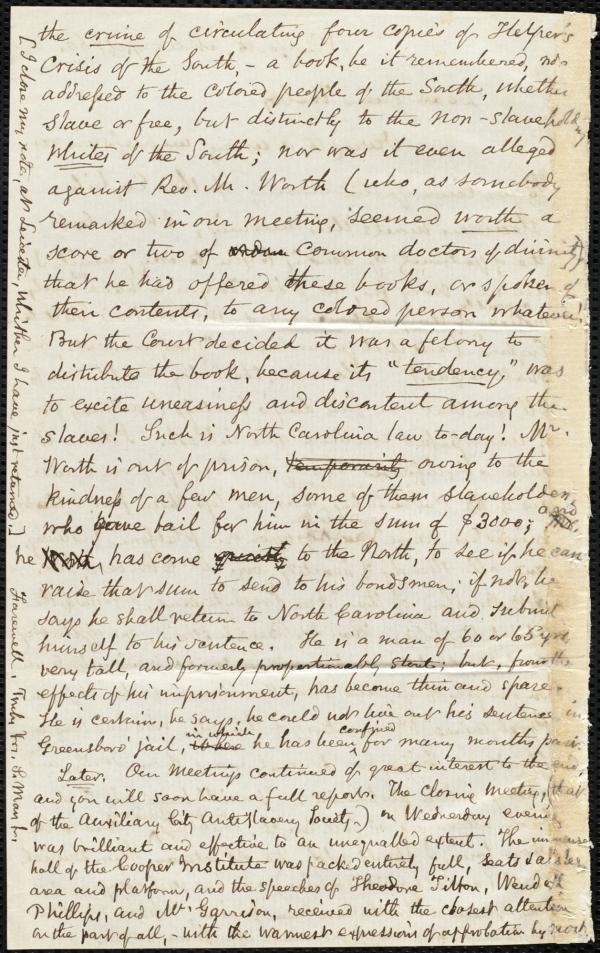 the crime of circulating four copies of Helper's
Crisis of the South, - a book, be it remembered, not
addressed to the colored people of the South, whether
slave or free, but distinctly to the non-slaveholding
Whites of the South; nor was it even alleged
against Rev. Mr. Worth (who, as somebody
remarked in our meeting, seemed worth a
score or two of common doctors of divinity)
that he had offered these books, or spoken of
their contents, to any colored person whatever!
But the Court decided it was a felony to
distribute the book, because its "tendency" was
to excite uneasiness and discontent among the
slaves! Such is North Carolina law to-day! Mr.
Worth is out of prison, temporarily owing to the
kindness of a few men, some of them slaveholders,
who gave bail for him in the sum of $3000; and
he has come quietly to the North, to see if he can
raise that sum to send to his bondsmen; if not, he
says he shall return to North Carolina and submit
himself to his sentence. He is a man of 60 or 65 yrs,
very tall, and formerly proportionably stout; but, from the
effects of his imprisonment, has become thin and spare.
He is certain, he says, he could not live out his sentence in
Greensboro' jail, in which he has been confined for many months
Later. Our meetings continued of great interest to the end,
and you will soon have a full report. The closing meeting, (that
of the Auxiliary City AntiSlavery Society,) on Wednesday evening
was brilliant and effective to an unequalled extent. The immense
hall of the Cooper Institute was packed entirely full, seats
area and platform, and the speeches of Theodore Tilton, Wendell
Phillips, and Mr. Garrison, received with the closest attention
on the part of all, - with the warmest expressions of approbation by most
[I close my note, at Leicester, whither I have just returned.]
Farewell, Truly Yrs, S. May Jr.